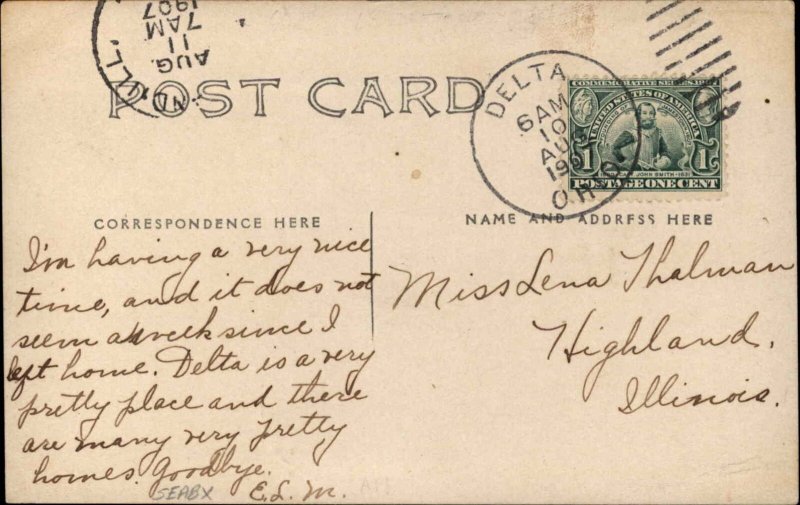 1907
7AM
11
AUG.
ILL.
POST CARD
DELTA
6AM
10
AUG
190
OHIO
COMMEMORATIVE SERIES 1907
UNITED STATES OF AMERICA
1 1
CAPT. JOHN SMITH
POSTAGE ONE CENT
CORRESPONDENCE HERE
NAME AND ADDRESS HERE
I'm having a very nice
time, and it does not
seem a week since I
left home. Delta is a very
pretty place and there
are many very pretty
homes. Goodbye.
E.L.M.
SEABX
Miss Lena Thalman
Highland,
Illinois.